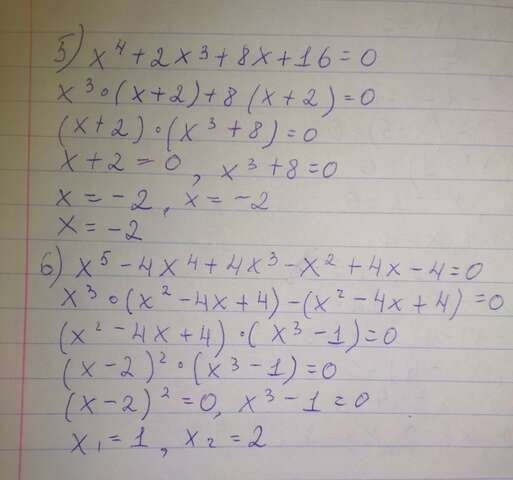 5) x⁴ + 2x³ + 8x + 16 = 0
x³ • (x + 2) + 8 (x + 2) = 0
(x + 2) • (x³ + 8) = 0
x + 2 = 0, x³ + 8 = 0
x = -2, x = -2
x = -2
6) x⁵ - 4x⁴ + 4x³ - x² + 4x - 4 = 0
x³ • (x² - 4x + 4) - (x² - 4x + 4) = 0
(x² - 4x + 4) • (x³ - 1) = 0
(x - 2)² • (x³ - 1) = 0
(x - 2)² = 0, x³ - 1 = 0
x₁ = 1, x₂ = 2